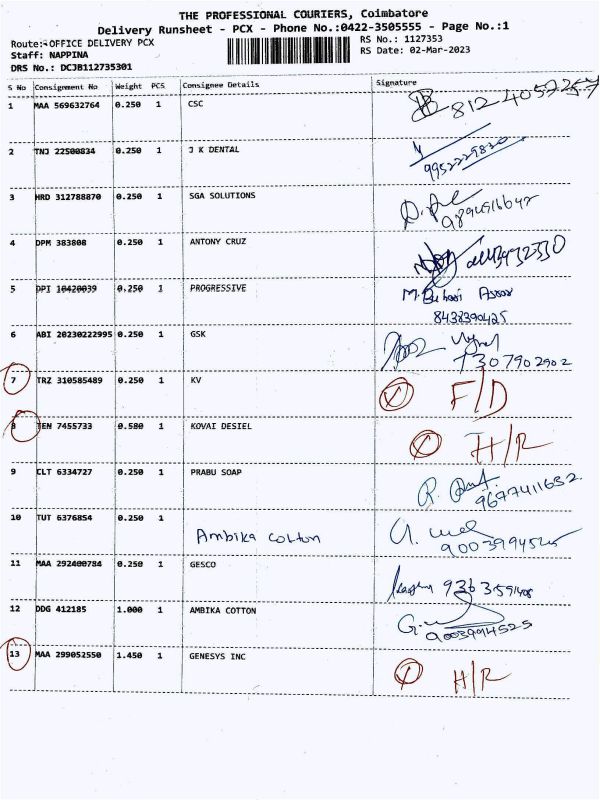 THE PROFESSIONAL COURIERS, Coimbatore
Delivery Runsheet - PCX - Phone No.:0422-3505555 - Page No.:1
Route: OFFICE DELIVERY PCX
RS No.: 1127353
Staff: NAPPINA
RS Date: 02-Mar-2023
DRS No.: DCJB112735301
S No Consignment No Weight PCS Consignee Details Signature
1 MAA 569632764 0.250 1 CSC
2 TNJ 22500834 0.250 1 J K DENTAL 9952229820
3 HRD 312788870 0.250 1 SGA SOLUTIONS
4 DPM 383808 0.250 1 ANTONY CRUZ
5 DPI 10420039 0.250 1 PROGRESSIVE M. Buhari
8438390425
6 ABI 20230222995 0.250 1 GSK
7307902902
7 TRZ 310585489 0.250 1 KV F/D
8 JEN 7455733 0.580 1 KOVAI DESIEL H/R
9 CLT 6334727 0.250 1 PRABU SOAP R.
9677411652
10 TUT 6376854 0.250 1 Ambika cotton
9003994525
11 MAA 292400784 0.250 1 GESCO
12 DDG 412185 1.000 1 AMBIKA COTTON G.
9003994525
13 MAA 299052550 1.450 1 GENESYS INC H/R